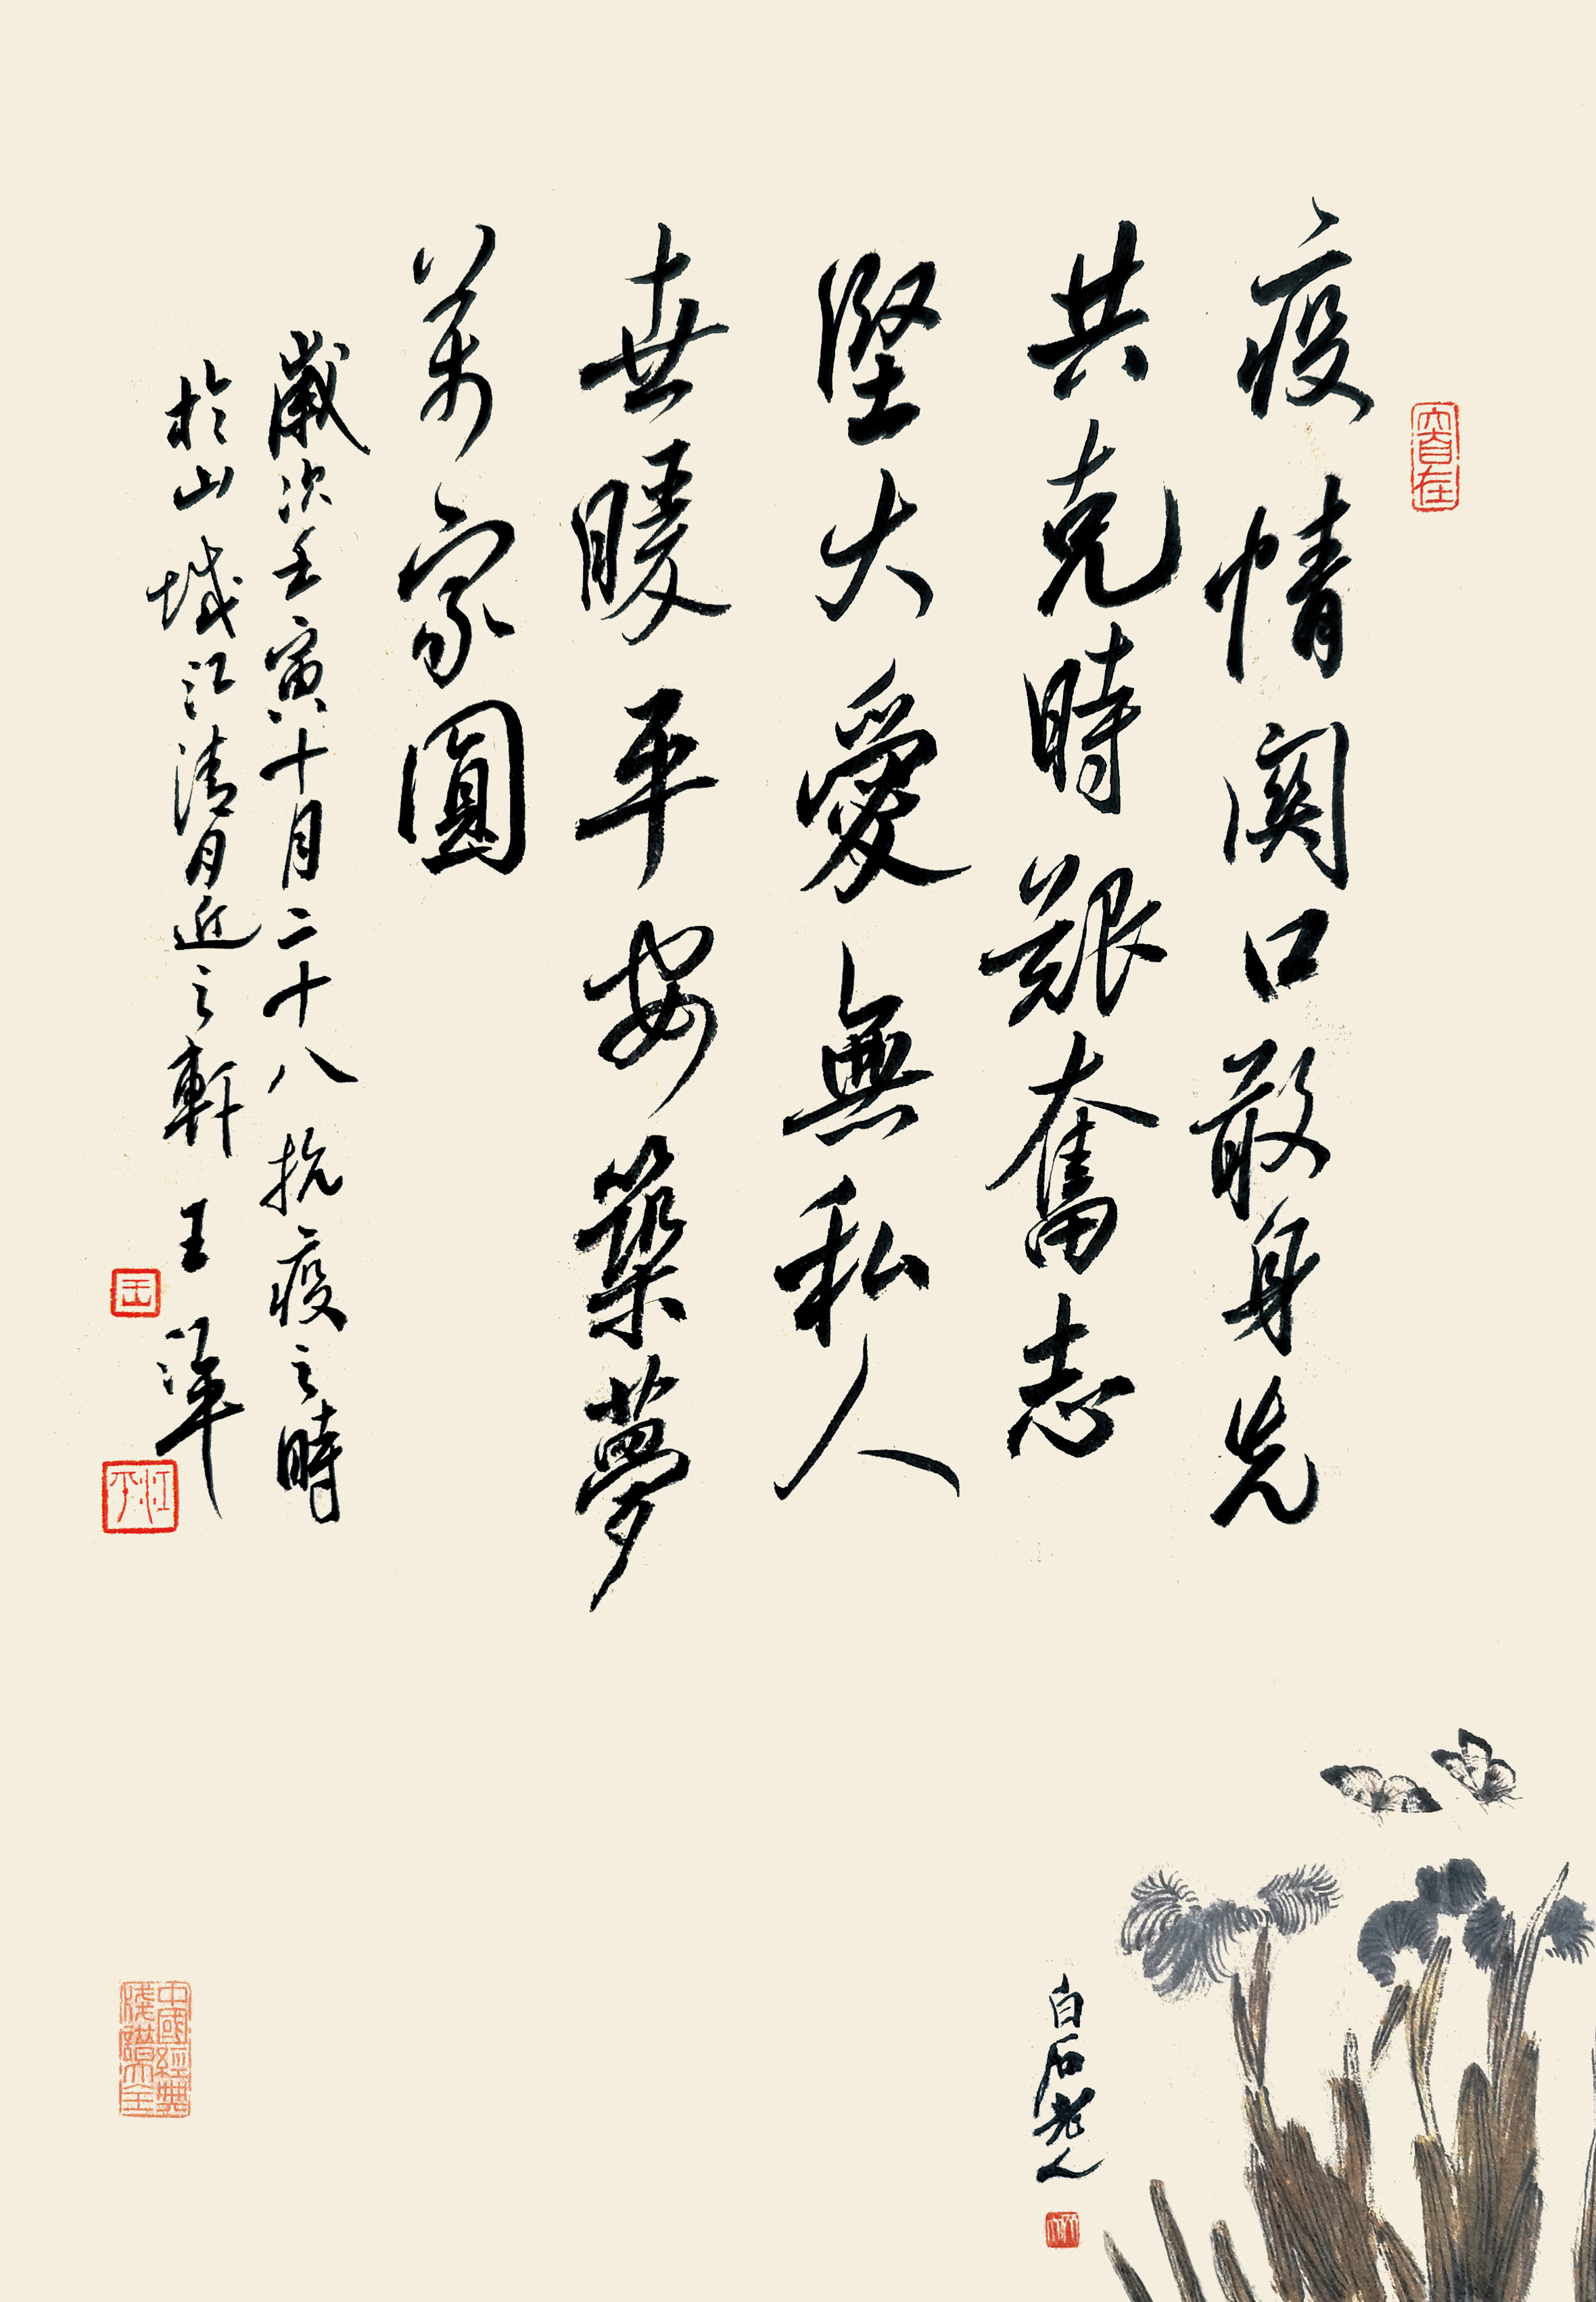 疫情関口敢身先
共克時艱奮志
堅大愛無私人
世暖平安築夢
萬家圓
歲次壬寅十月二十八抗疫之時
於山城江清月近之軒 王
白石老人
中國經典